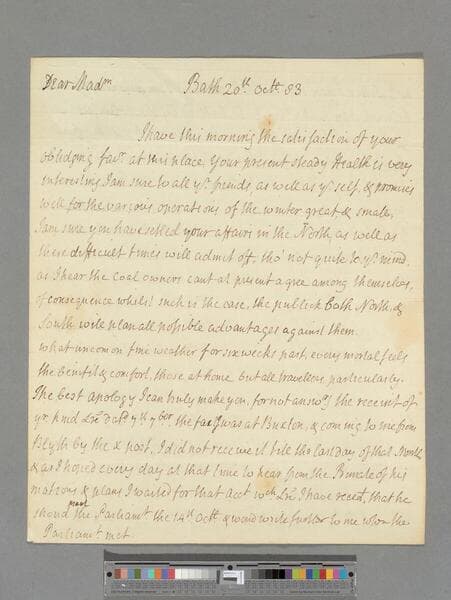 Dear Madm Bath 20th Octr 83
I have this morning the satisfaction of your
obliдging favr at this place, your present steady Health is very
interesting I am sure to all yr friends, as well as yr self, & promises
well for the various operations of the winter great & small,
I am sure you have settled your affairs in the North as well as
these difficult times will admit of, tho' not quite to yr mind,
as I hear the Coal owners cant at present agree among themselves,
of consequence whilst such is the case, the publick both North &
South will plan all possible advantages against them.
what uncommon fine weather for six weeks past, every mortal feels
the benifit & comfort, those at home but all travellers particularly.
The best apology I can truly make you, for not answg the receit of
yr kind Lre 7th 7ber, was at Buxton, & coming to me from
Blyth by the x post, I did not receive it till the last day of that Month
& as I hoped every day at that time to hear from the Primate of his
motions & plans I waited for that acct wch Lre I have reced, that he
shoud meet the Parliamt the 14th Octr & woud write further to me when the
Parliamt met